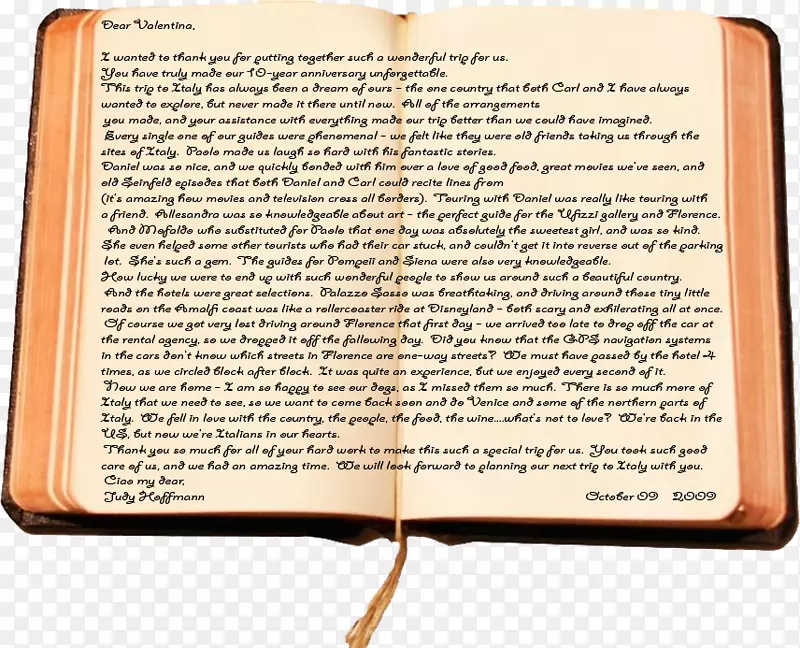 Dear Valentina,
I wanted to thank you for putting together such a wonderful trip for us.
You have truly made our 10-year anniversary unforgettable.
This trip to Italy has always been a dream of ours - the one country that both Carl and I have always
wanted to explore, but never made it there until now. All of the arrangements
you made, and your assistance with everything made our trip better than we could have imagined.
Every single one of our guides were phenomenal - we felt like they were old friends taking us through the
sites of Italy. Paolo made us laugh so hard with his fantastic stories.
Daniel was so nice, and we quickly bonded with him over a love of good food, great movies we've seen, and
old Seinfeld episodes that both Daniel and Carl could recite lines from
(it's amazing how movies and television cross all borders). Touring with Daniel was really like touring with
a friend. Allesandra was so knowledgeable about art - the perfect guide for the Ufizzi gallery and Florence.
And Mofaldo who substituted for Paolo that one day was absolutely the sweetest girl, and was so kind.
She even helped some other tourists who had their car stuck, and couldn't get it into reverse out of the parking
lot. She's such a gem. The guides for Pompeii and Siena were also very knowledgeable.
How lucky we were to end up with such wonderful people to show us around such a beautiful country.
And the hotels were great selections. Palazzo Sasso was breathtaking, and driving around those tiny little
roads on the Amalfi coast was like a rollercoaster ride at Disneyland - both scary and exhilerating all at once.
Of course we got very lost driving around Florence that first day - we arrived too late to drop off the car at
the rental agency, so we dropped it off the fallowing day. Did you know that the GPS navigation systems
in the cars don't know which streets in Florence are one-way streets? We must have passed by the hotel 4
times, as we circled block after block. It was quite an experience, but we enjoyed every second of it.
Now we are home - I am so happy to see our dogs, as I missed them so much. There is so much more of
Italy that we need to see, so we want to come back soon and do Venice and some of the northern parts of
Italy. We fell in love with the country, the people, the food, the wine....what's not to love? We're back in the
US, but now we're Italians in our hearts.
Thank you so much for all of your hard work to make this such a special trip for us. You took such good
care of us, and we had an amazing time. We will look forward to planning our next trip to Italy with you.
Ciao my dear,
Judy Hoffmann October 09 2009